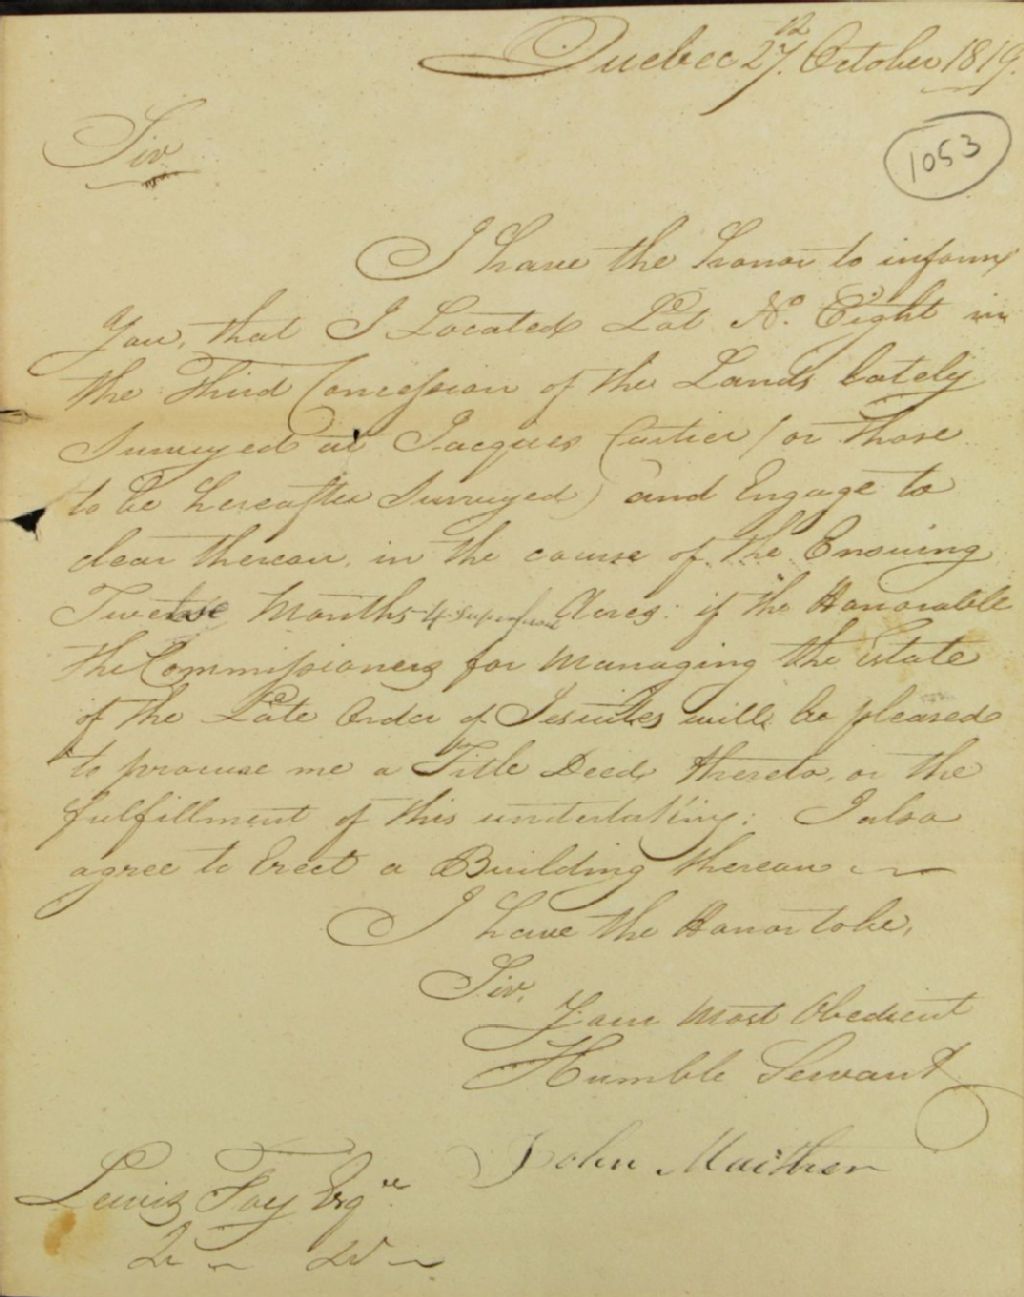 Quebec 27th October 1819.
Sir
1053
I have the honor to inform
You, that I Located Lot No. Eight in
the Third Concession of the Lands lately
Surveyed at Jacques Cartier (or those
to be hereafter Surveyed) and Engage to
clear thereon, in the course of the Ensuing
Twelve Months 4 superficial Acres: if the Honorable
the Commissioners for Managing the Estate
of the Late Order of Jesuites will be pleased
to procure me a Title Deed thereto, on the
fulfillment of this undertaking: I also
agree to Erect a Building thereon
I have the Honor to be,
Sir,
Your Most Obedient
Humble Servant
John
Lewis Foy Esqre